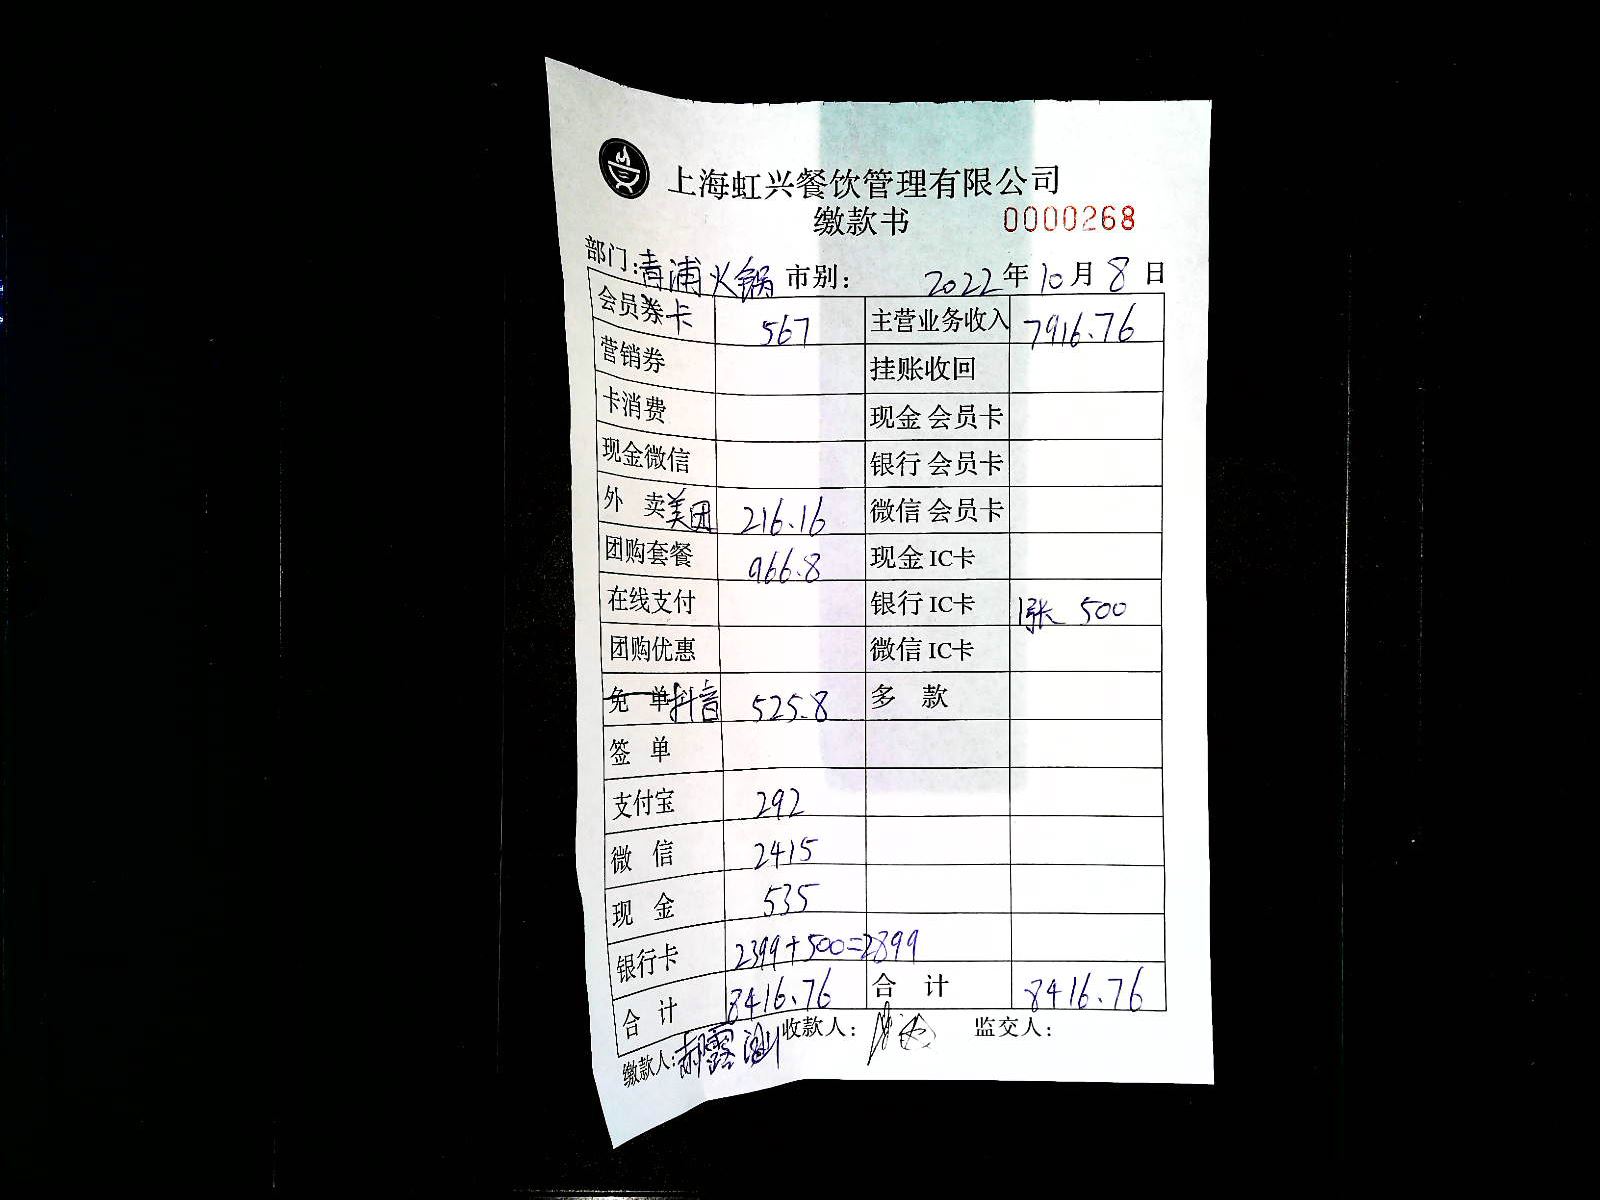 上海虹兴餐饮管理有限公司
缴款书 0000268
部门:青浦火锅 市别: 2022年10月8日
会员券卡 567 主营业务收入 7916.76
营销券 挂账收回
卡消费 现金会员卡
现金微信 银行会员卡
外卖美团 216.16 微信会员卡
团购套餐 966.8 现金IC卡
在线支付 银行IC卡 1张 500
团购优惠 微信IC卡
免单抖音 525.8 多款
签单
支付宝 292
微信 2415
现金 535
银行卡 2399+500=2899
合计 8416.76 合计 8416.76
缴款人: 收款人: 监交人: